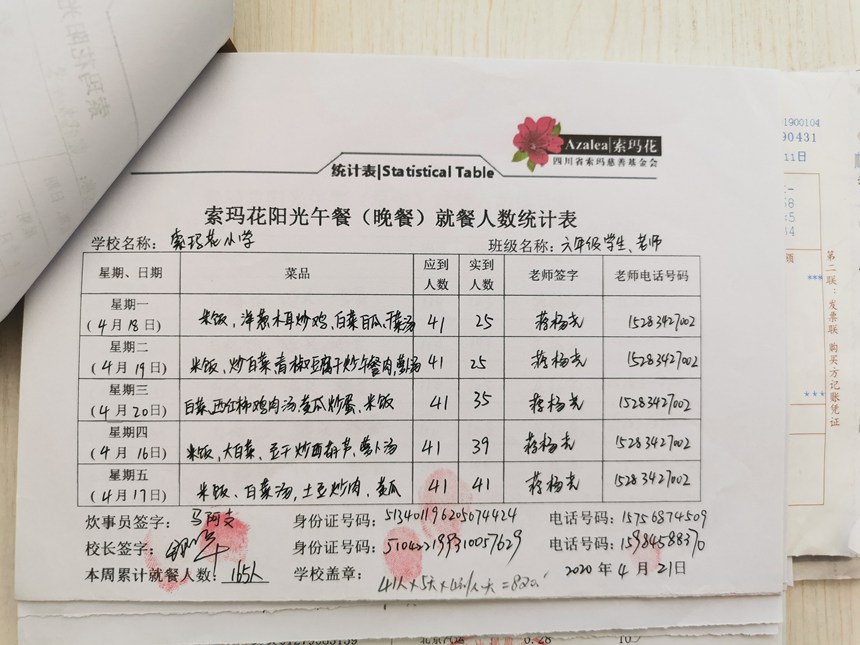 1900104
90431
11日
Azalea|索玛花
四川省索玛慈善基金会
统计表|Statistical Table
索玛花阳光午餐（晚餐）就餐人数统计表
学校名称： 索玛花小学 班级名称：六年级学生、老师
星期、日期 菜品 应到人数 实到人数 老师签字 老师电话号码
星期一
(4月18日) 米饭，洋葱木耳炒鸡，白菜 汤 41 25 蒋杨尧 15283427002
星期二
(4月19日) 米饭、炒白菜、青椒豆腐干炒午餐肉，汤 41 25 蒋杨尧 15283427002
星期三
(4月20日) 白菜、西红柿鸡肉汤、黄瓜炒蛋、米饭 41 35 蒋杨尧 15283427002
星期四
(4月16日) 米饭、大白菜、豆干炒西葫芦，萝卜汤 41 39 蒋杨尧 15283427002
星期五
(4月17日) 米饭、白菜汤，土豆炒肉、黄瓜 41 41 蒋杨尧 15283427002
炊事员签字： 马阿支 身份证号码：513401196205674424 电话号码：15756874509
校长签字： 身份证号码：510422199310057629 电话号码：15984588370
本周累计就餐人数：165人 学校盖章： 2020年4月21日
41人×5天×4元/人·天=820
第二联：发票联 购买方记账凭证